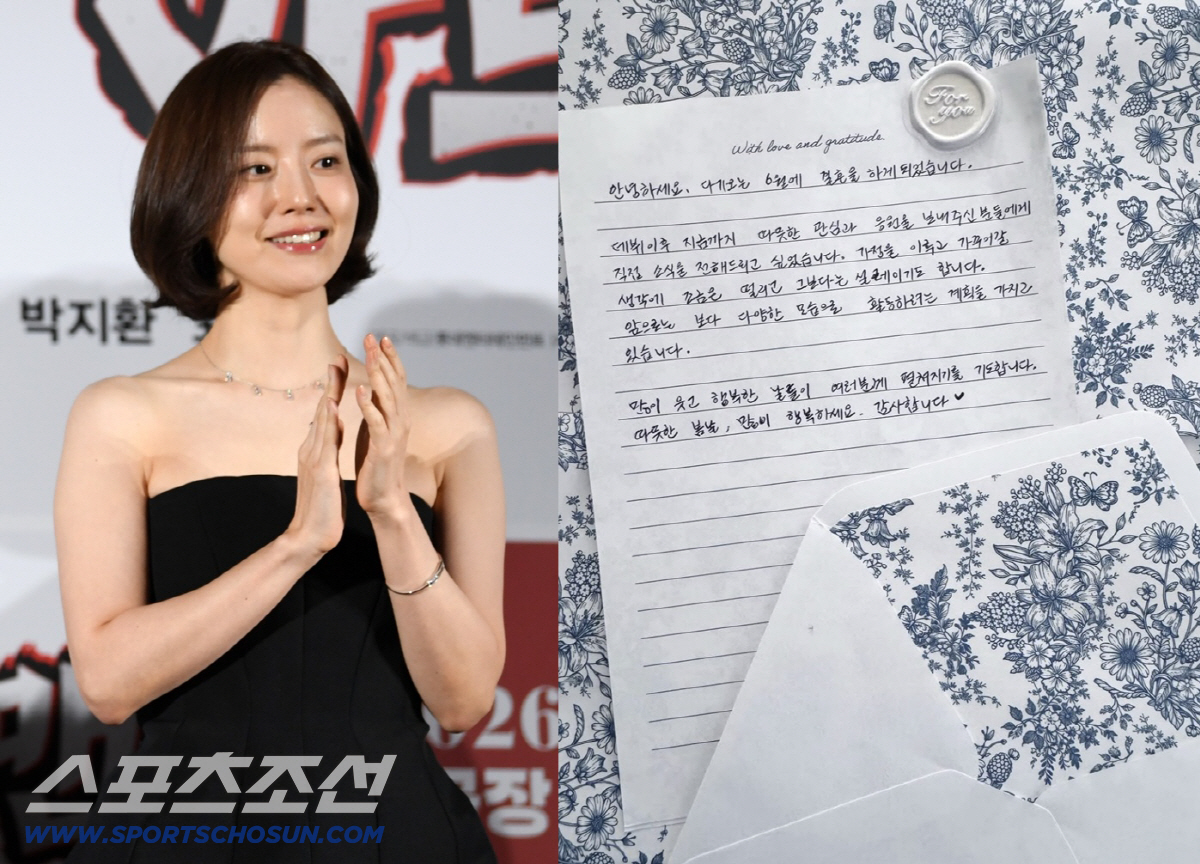 박지환
026
스포츠조선
WWW.SPORTSCHOSUN.COM
For
you
With love and gratitude
안녕하세요, 다가오는 6월에 결혼을 하게 되었습니다.
데뷔이후 지금까지 따뜻한 관심과 응원을 보내주신 분들에게
직접 소식을 전해드리고 싶었습니다. 가정을 이루고 가꾸어갈
생각에 조금은 떨리고 그보다는 설레이기도 합니다.
앞으로는 보다 다양한 모습으로 활동하려는 계획을 가지고
있습니다.
많이 웃고 행복한 날들이 여러분께 펼쳐지기를 기도합니다.
따뜻한 봄날, 많이 행복하세요. 감사합니다 ♥